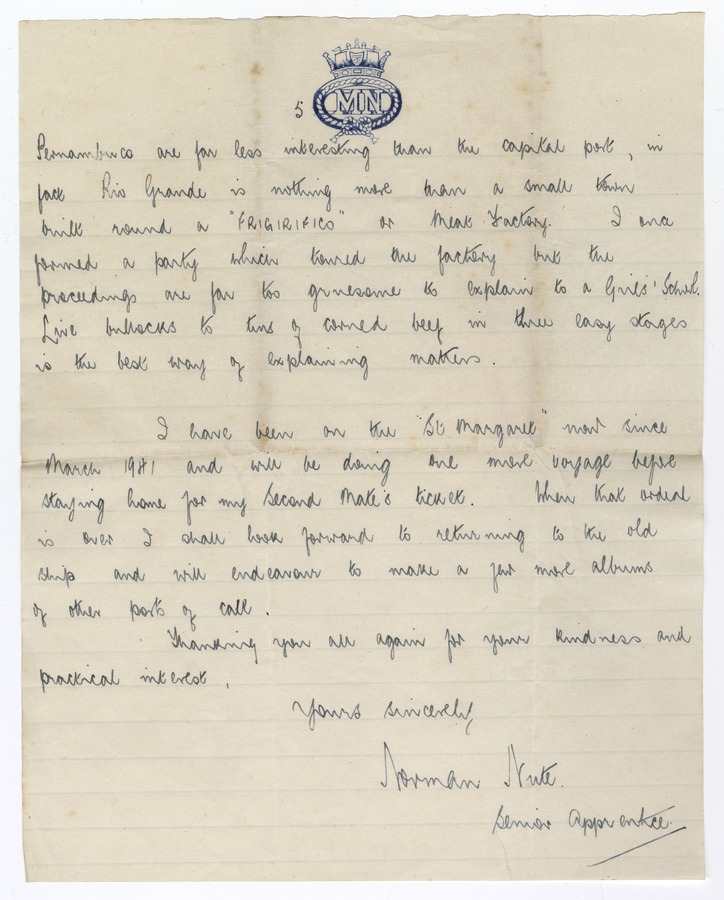 5
MN
Pernambuco are far less interesting than the capital port, in
fact Rio Grande is nothing more than a small town
built round a "FRIGIRIFICO" or Meat Factory. I once
formed a party which toured the factory but the
proceedings are far too gruesome to explain to a Girls' School.
Live bullocks to tins of corned beef in three easy stages
is the best way of explaining matters.
I have been on the "St Margaret" now since
March 1941 and will be doing one more voyage before
staying home for my Second Mate's ticket. When that ordeal
is over I shall look forward to returning to the old
ship and will endeavour to make a few more albums
of other ports of call.
Thanking you all again for your kindness and
practical interest,
Yours sincerely,
Norman Nute.
Senior Apprentice.